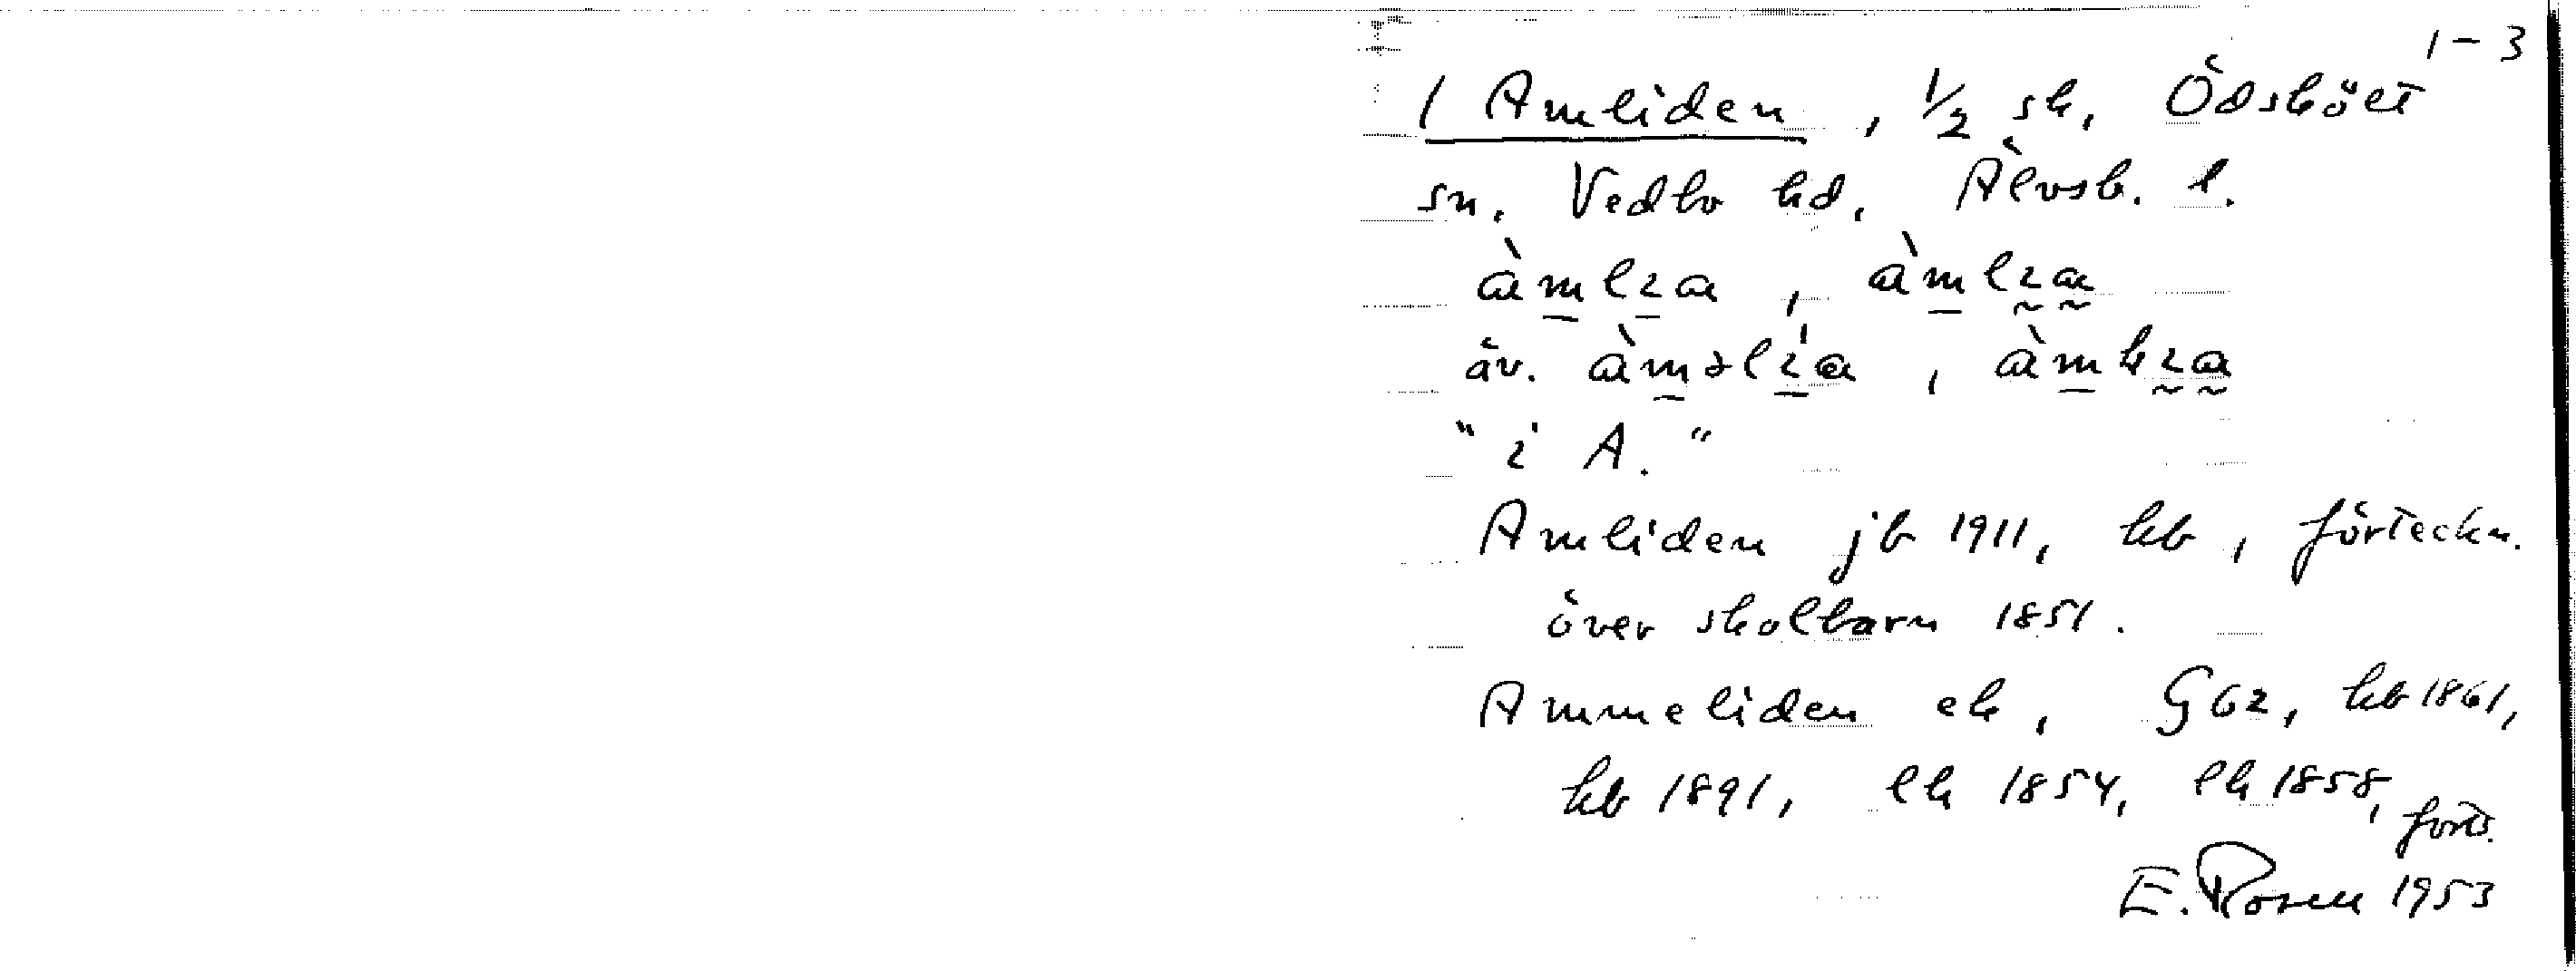 1-3
1 Amliden, 1/2 sk, Ödsköet
sn. Vedbo hd, Älvsb. l.
àmlɩa, àmlɩa
äv. àməlɩ́a, àmlɩa
"i A."
Amliden jb 1911, kb, förteckn.
över skolbarn 1851.
Ammeliden ek, G62, kb 1861,
kb 1891, lk 1854, lk 1858, forts.
E. Rosen 1953